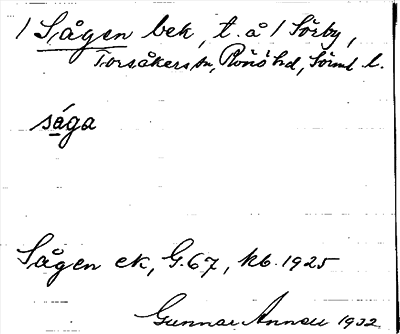 / Sågen bek, t. å / Sörby,
Torsåkers sn, Rönö hd, Sörml l.
såga
Sågen ek, G.67, kb. 1925
Gunnar Annell 1932